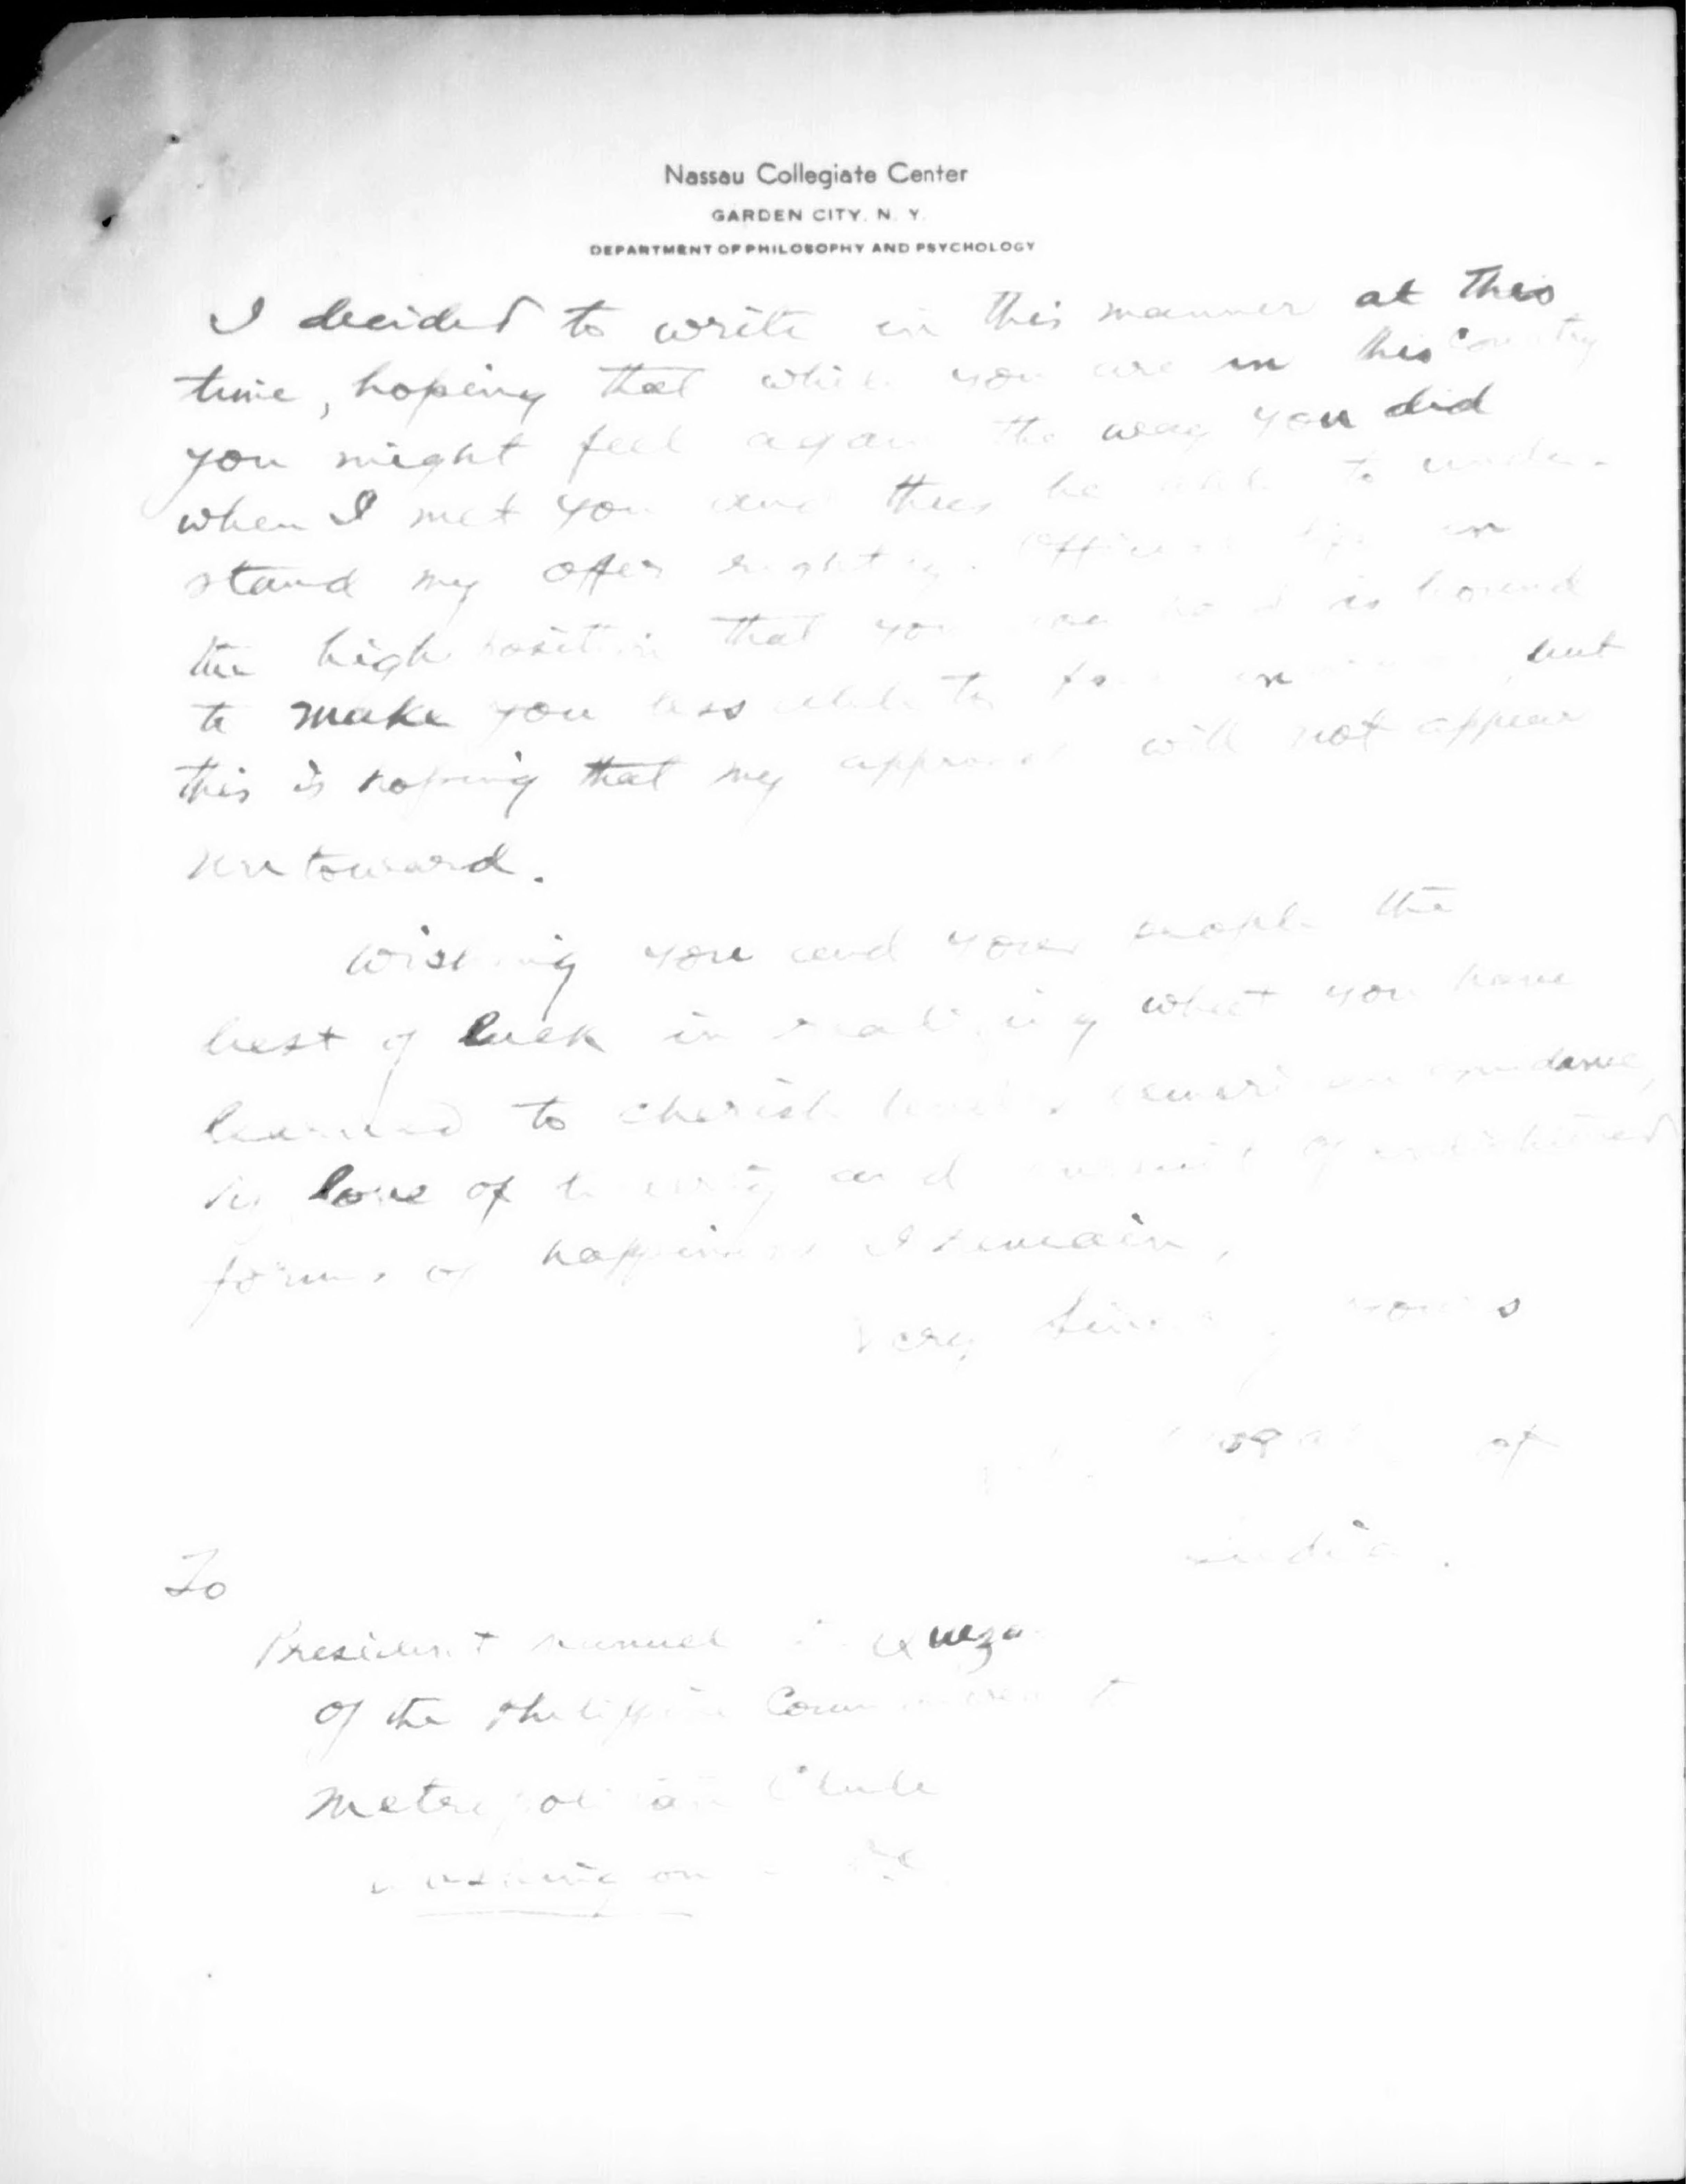 Nassau Collegiate Center
GARDEN CITY, N. Y.
DEPARTMENT OF PHILOSOPHY AND PSYCHOLOGY
I decided to write in this manner at this
time, hoping that while you are in this Country
you might feel again the way you did
when I met you and thus be able to under-
stand my offer rightly. Official life in
the high position that you now hold is bound
to make you less able to but
this is hoping that my approach will not appear
untoward.
Wishing you and your people the
best of luck in realizing what you have
learned to cherish
by love of and pursuit of enlightened
forms of happiness I remain,
Very Sincerely yours
of
India.
To
President Manuel Quezon
of the Philippine Commonwealth
Metropolitan Club
Washington DC